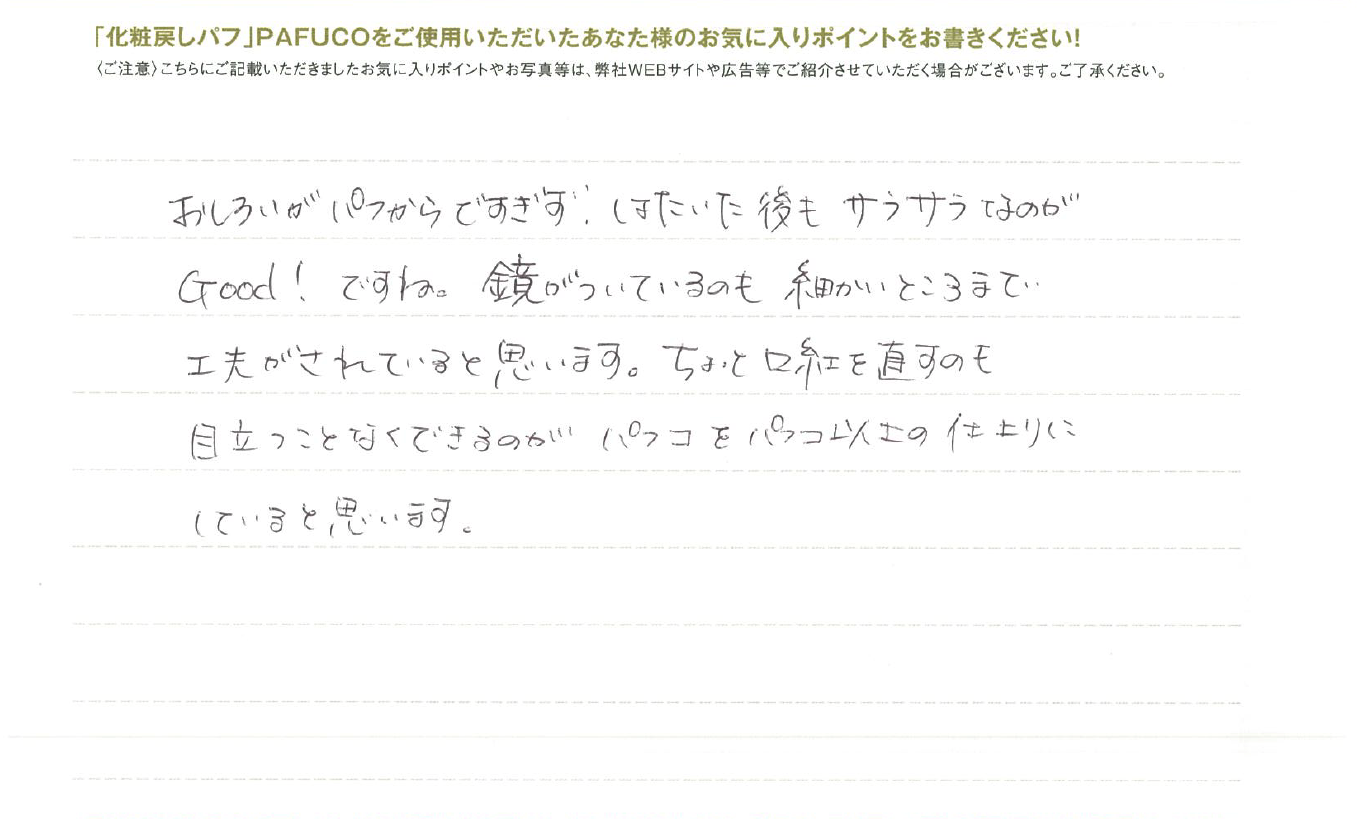 「化粧戻しパフ」PAFUCOをご使用いただいたあなた様のお気に入りポイントをお書きください!
〈ご注意〉こちらにご記載いただきましたお気に入りポイントやお写真等は、弊社WEBサイトや広告等でご紹介させていただく場合がございます。ご了承ください。
おしろいがパフからですぎず、はたいた後も サラサラなのが
Good! ですね。鏡がついているのも 細かいところまで
工夫がされていると思います。ちょっと口紅を直すのも
目立つことなくできるのが パフコをパフコ以上の仕上りに
していると思います。